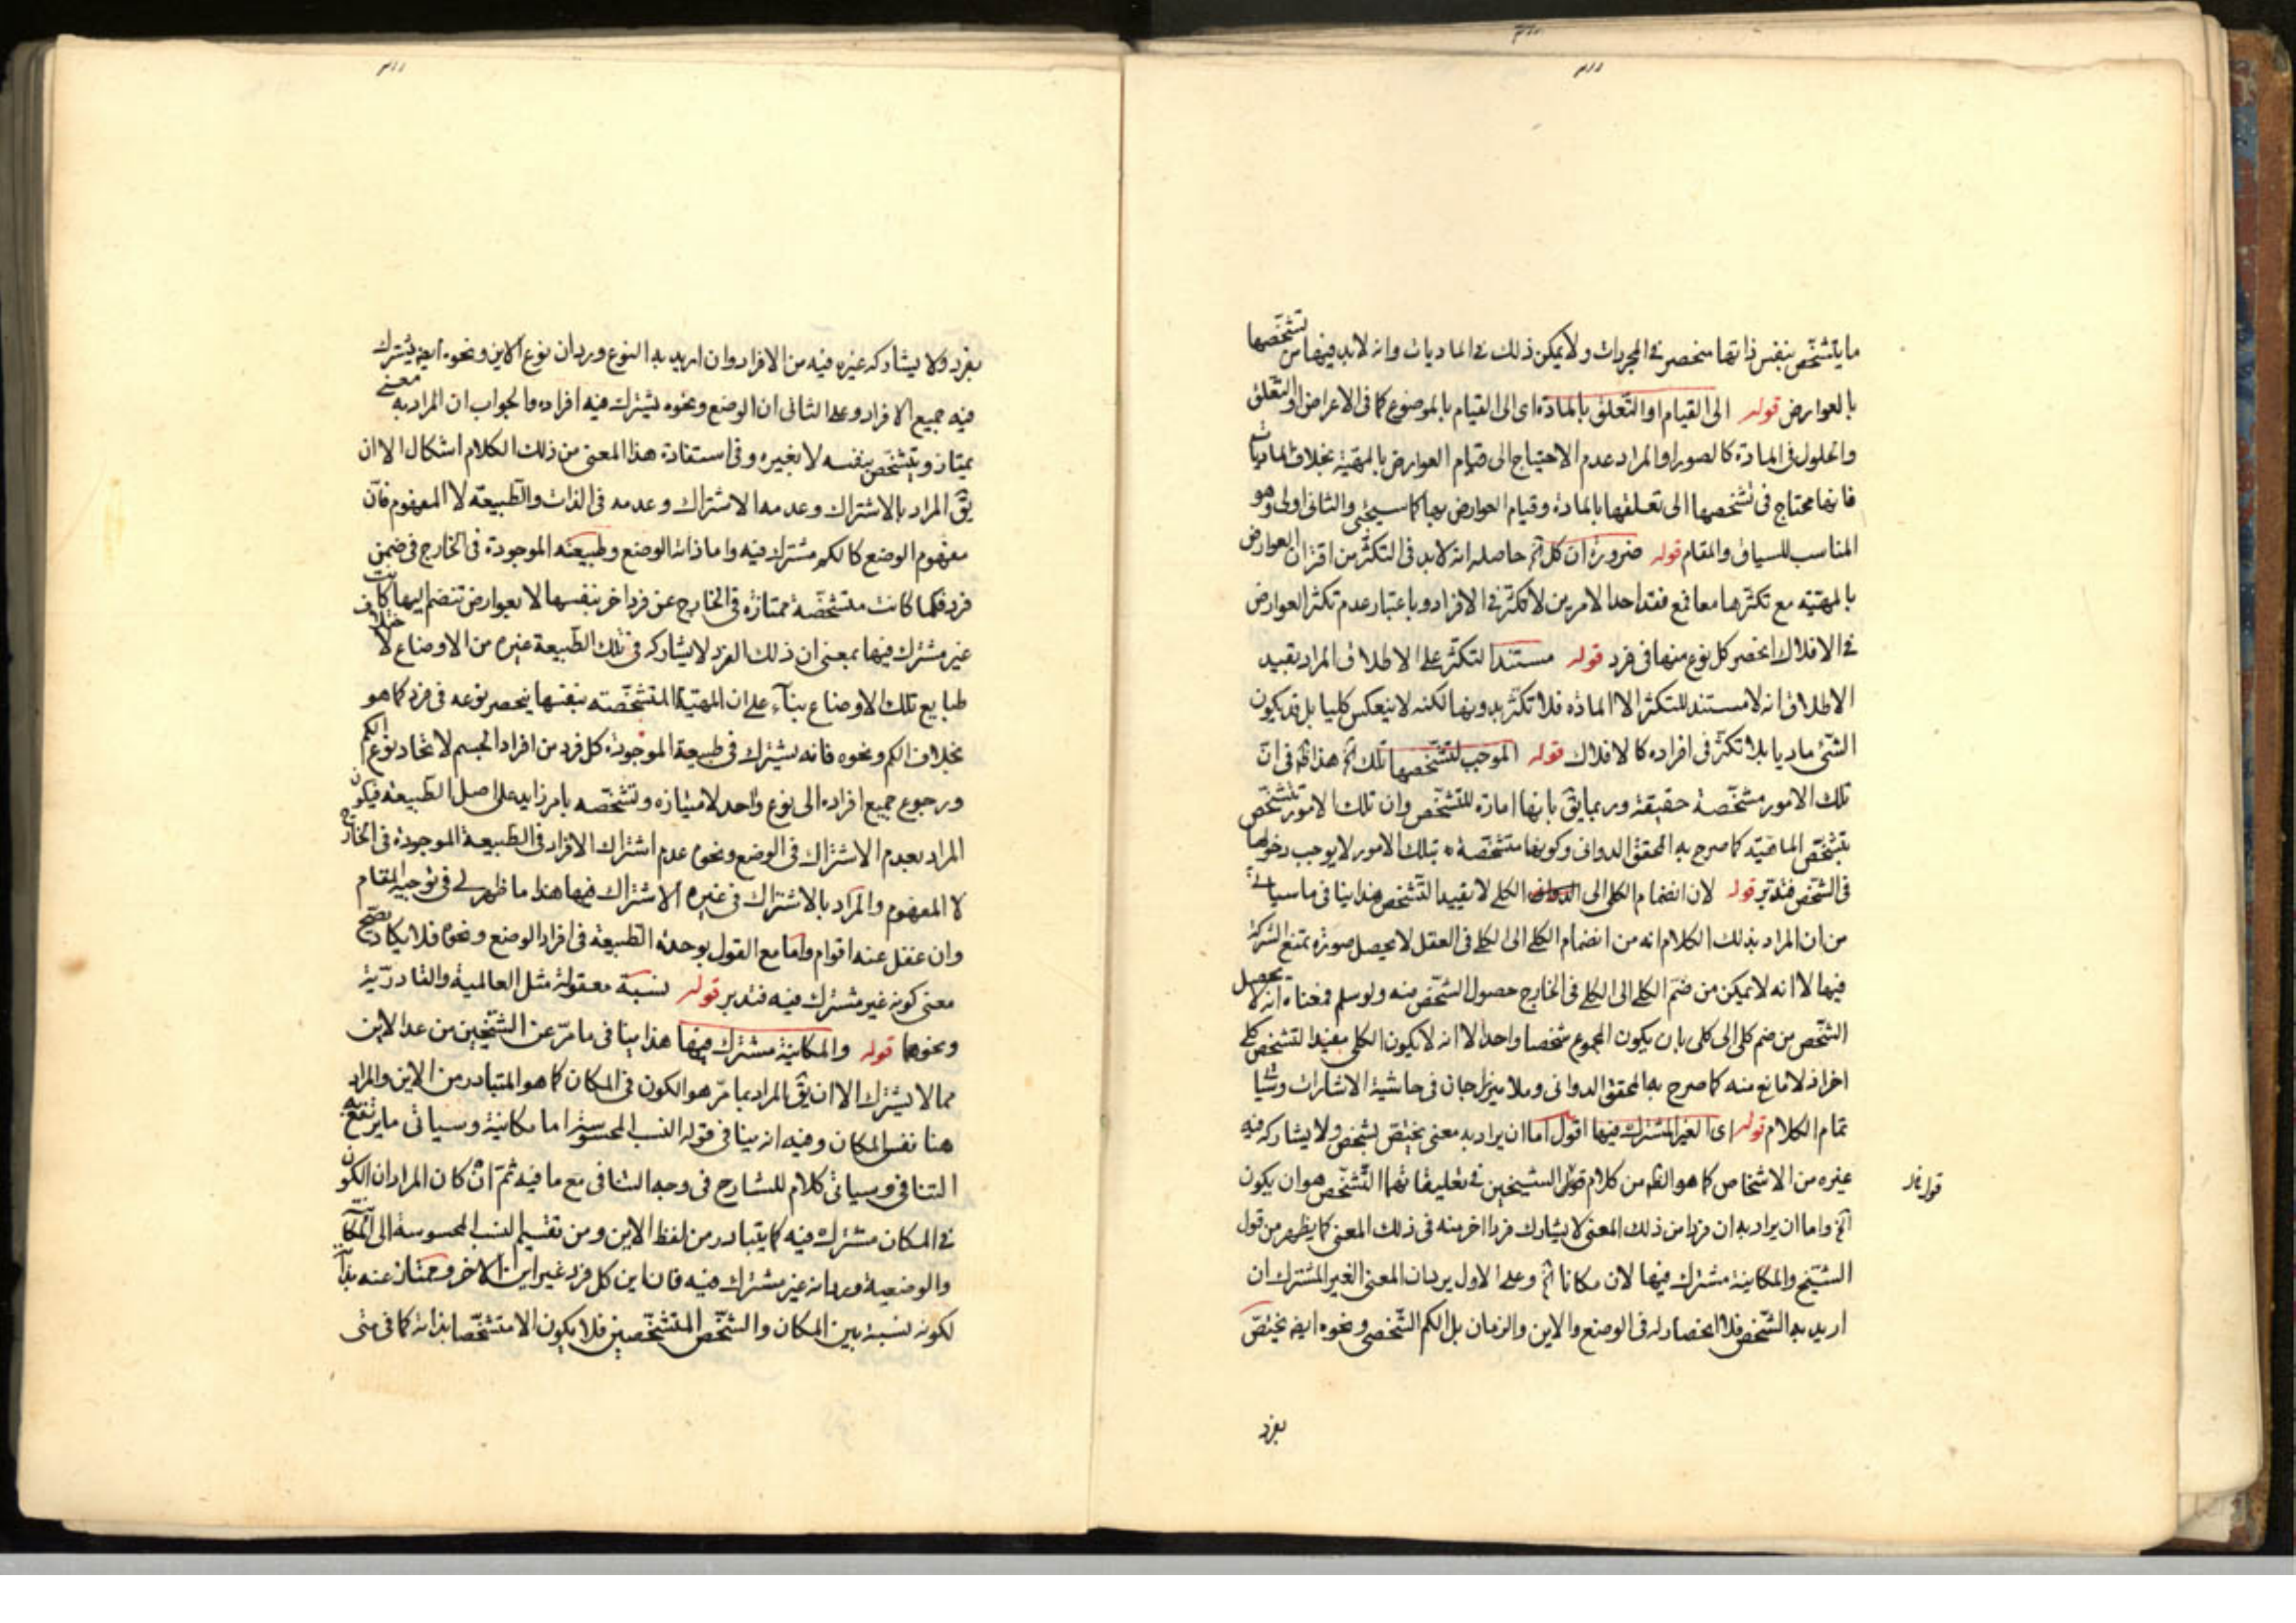 ما يتشخّص بنفس ذاتها منحصر في المجردات ولا يمكن ذلك في الماديات وانه لابد فيها من تشخّصها
بالعوارض قوله الى القيام او التّعلق بالمادّة اى الى القيام بالموضوع كما فى الاعراض او التّعلّق
والحلول فى المادّة كالصور او المراد عدم الاحتياج الى قيام العوارض بالمهيّة بخلاف الماديات
فانها محتاج فى تشخصها الى تعلقها بالمادة وقيام العوارض بها كما سيجئى والثانى اولى وهو
المناسب للسياق والمقام قوله ضرورة ان كل آه حاصله انه لابد فى التكثّر من اقتران العوارض
بالمهيّة مع تكثّرها معا فمع فقد احد الامرين لا تكثّر فى الافراد وباعتبار عدم تكثّر العوارض
في الافلاك انحصر كل نوع منها فى فرد قوله مستند التكثّر على الاطلاق المراد بقيد
الاطلاق انه لا مستند للتكثر الا المادّة فلا تكثّر بدونها لكنه لا ينعكس كليا بل قد يكون
الشئ ماديا بلا تكثّر فى افراده كالافلاك قوله الموجب لتشخّصها تلك آه هذا ظ فى انّ
تلك الامور مشخّصة حقيقة وربما يقّ بانها امارة للتشخّص وان تلك الامور تتشخّص
بتشخّص الماهيّة كما صرح به المحقق الدوانى وكونها متشخّصة بتلك الامور لا يوجب دخولها
فى الشّخص فتدبّر قوله لان انضمام الكلى الى الكلى لا يفيد التّشخص هذا ينافى ما سياتى
من ان المراد بذلك الكلام انه من انضمام الكلى الى الكلى فى العقل لا يحصل صورة يمتنع الشركة
فيها لا انه لا يمكن من ضمّ الكلى الى الكلى فى الخارج حصول الشّخص منه ولو سلم فمعناه انه لا يحصل
الشّخص من ضم كلى الى كلى بان يكون المجموع شخصا واحدا لا انه لا يكون الكلى مفيدا لتشخص كلى
اخر اذ لا مانع منه كما صرح به المحقق الدوانى وملا ميرزا جان فى حاشية الاشارات وسياتى
تمام الكلام قوله اى الغير المشترك فيها اقول اما ان يراد به معنى يختصّ بشخص ولا يشاركه فيه
غيره من الاشخاص كما هو الظ من كلام قول الشيخين فى تعليقاتهما التّشخّص هو ان يكون
آه واما ان يراد به ان فردا من ذلك المعنى لا يشارك فردا اخر منه فى ذلك المعنى كما يظهر من قول
الشّيخ والمكانية مشترك فيها لان مكانا آه وعلى الاول يرد ان المعنى الغير المشترك ان
اريد به الشّخص فلا انحصار له فى الوضع والاين والزمان بل الكم الشّخصى ونحوه ايضا يختصّ
بفرد
بفرد ولا يشاركه غيره فيه من الافراد وان اريد به النوع ورد ان نوع الاين ونحوه ايضا يشترك
فيه جميع الافراد وعلى الثانى ان الوضع ونحوه يشترك فيه افراده والجواب ان المراد به معنى
يمتاز ويتشخّص بنفسه لا بغيره وفى استفادة هذا المعنى من ذلك الكلام اشكال الا ان
يقّ المراد بالاشتراك وعدمه الاشتراك وعدمه فى الذات والطّبيعة لا المفهوم فانّ
مفهوم الوضع كالكم مشترك فيه واما ذات الوضع وطبيعته الموجودة فى الخارج فى ضمن
فرد فكما كانت متشخّصة ممتازة فى الخارج عن فرد اخر بنفسها لا بعوارض تنضم اليها كانت
غير مشترك فيها بمعنى ان ذلك الفرد لا يشاركه فى تلك الطّبيعة غيره من الاوضاع لاختلاف
طبايع تلك الاوضاع بناء على ان المهيّة المتشخّصة بنفسها ينحصر نوعه فى فرد كما هو
بخلاف الكم ونحوه فانه يشترك فى طبيعة الموجودة كل فرد من افراد الجسم لاتحاد نوع الكم
ورجوع جميع افراده الى نوع واحد لامتيازه وتشخّصه بامر زايد على اصل الطّبيعة فيكون
المراد بعدم الاشتراك فى الوضع ونحوه عدم اشتراك الافراد فى الطّبيعة الموجودة فى الخارج
لا المفهوم والمراد بالاشتراك فى غيره الاشتراك فيها هذا ما ظهر لى فى توجيه المقام
وان غفل عنه اقوام واما مع القول بوحدة الطّبيعة فى افراد الوضع ونحوه فلا يكاد يصحّ
معنى كونه غير مشترك فيه فتدبر قوله نسبة معقولة مثل العالمية والقادرّية
ونحوهما قوله والمكانيّة مشترك فيها هذا ينافى ما مرّ عن الشّيخين من عد الاين
مما لا يشترك الا ان يقّ المراد بما مرّ هو الكون فى المكان كما هو المتبادر من الاين والمراد
هنا نفس المكان وفيه انه ينافى قوله النسب المحسوسة اما مكانية وسياتى ما يرتفع به
التنافى وسياتى كلام للشارح فى وجه التنافى مع ما فيه ثمّ انّه ان كان المراد ان الكون
فى المكان مشترك فيه كما يتبادر من لفظ الاين ومن تقسيم النسب المحسوسة الى المكانيّة
والوضعية ويرد انه غير مشترك فيه فان اين كل فرد غير اين الاخر وممتاز عنه بذاته
لكونه نسبة بين المكان والشّخص المتشخّصين فلا يكون الا متشخّصا بذاته كما فى متى